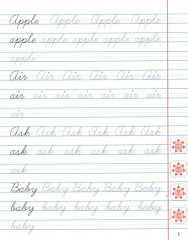 Apple Apple Apple Apple
apple apple apple apple apple
apple
Air Air Air Air Air Air
air air air air air air
air
Ask Ask Ask Ask Ask Ask
ask ask ask ask ask ask
ask
Baby Baby Baby Baby Baby
baby baby baby baby baby
baby
1